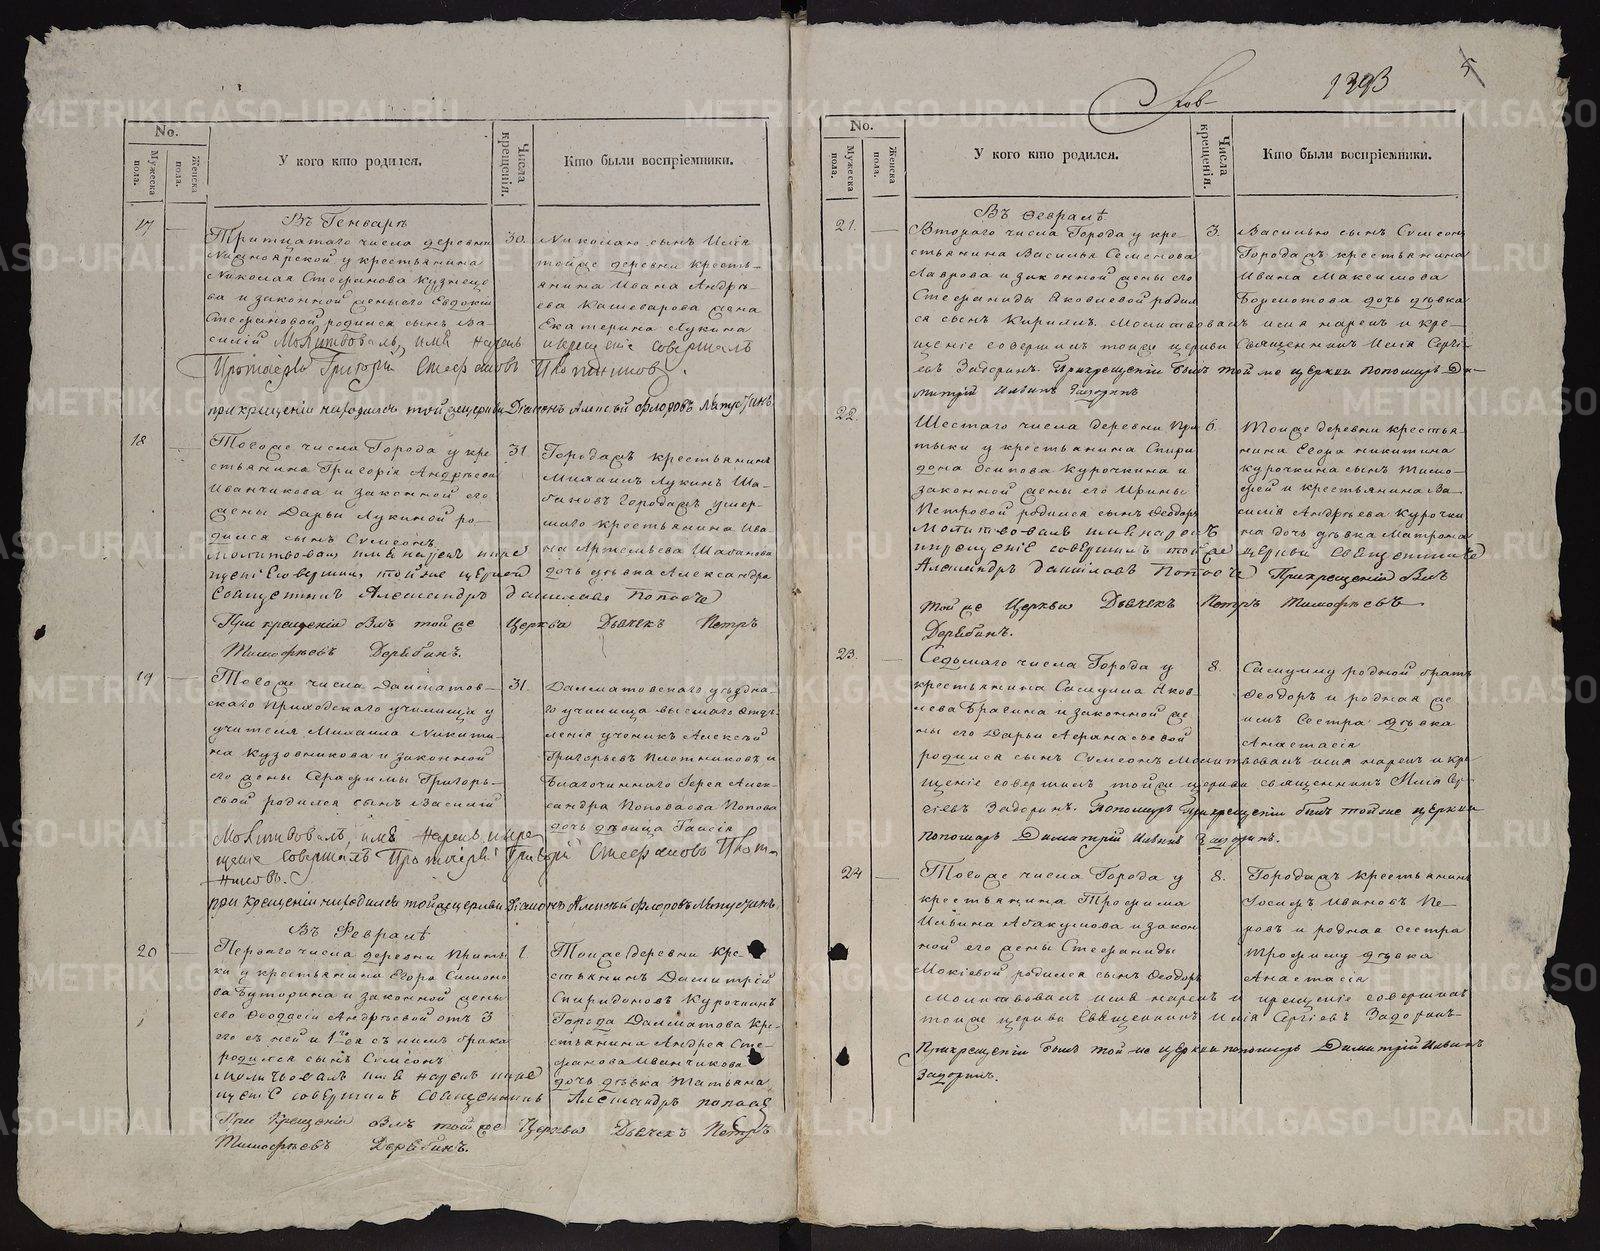 No.
Мужеска пола.
Женска пола.
У кого кто родился.
Числа крещенія.
Кто были воспріемники.
Въ Генварѣ
17
Тритцатаго числа деревни
у крестьянина
Николая Стефанова Кузнецо
ва и законной жены его Евдокіи
Стефановой родился сынъ Ва-
силій Молитвовалъ, имя нарекъ
и крещеніе совершалъ
Протоіерей Григорій Стефановъ Плотниковъ.
при крещеніи находился той же церкви Діаконъ Алексѣй Флоровъ
30.
Николаю сынъ Илія
той же деревни кресть-
янина Ивана Андрѣ-
ева Кашеварова жена
Екатерина Лукина
18
Того же числа Города у кре
стьянина Григорія Андрѣева
Иванчикова и законной его
жены Дарьи Лукиной ро-
дился сынъ Сѵмеонъ.
Молитвовалъ имя нарекъ и кре
щеніе совершилъ той же церкви
Священникъ Александръ Даниловъ Поповъ
При крещеніи былъ той же Церкви Дьячекъ Петръ
Тимофѣевъ Дерябинъ.
31
Городахъ крестьянинъ
Михаилъ Лукинъ Ша-
бановъ Городахъ умер-
шаго крестьянина Ива-
на Артемьева Шабанова
дочь дѣвка Александра
19
Того же числа Далматов-
скаго Приходскаго училища у
учителя Михаила Никити-
на Кузовникова и законной
его жены Серафимы Григорь-
евой родился сынъ Василій
Молитвовалъ, имя нарекъ, и кре
щеніе совершалъ Протоіерей Григорій Стефановъ Плот-
никовъ.
при крещеніи находился той же церкви Діаконъ Алексѣй Флоровъ
31.
Далматовскаго уѣздна-
го училища высшаго отдѣ-
ленія ученикъ Алексѣй
Григорьевъ Плотниковъ и
Благочиннаго Іерея Алек-
сандра Попова
дочь дѣвица Таисія
Въ Февралѣ
20
Перваго числа деревни Приты-
ки у крестьянина Егора Симоно
ва Буторина и законной жены
его Ѳеодосіи Андрѣевой отъ 3
его съ ней и 1го ея съ нимъ брака
родился сынъ Сѵмеонъ
Молитвовалъ имя нарекъ и кре
щеніе совершилъ Священникъ Александръ Поповъ
При Крещеніи былъ той же Церкви Дьячекъ Петръ
Тимофѣевъ Дерябинъ.
1.
Той же деревни кре
стьянинъ Димитрій
Спиридоновъ Курочкинъ
Города Далматова кре-
стьянина Андрея Сте-
фанова Иванчикова
дочь дѣвка Татьяна
1393
5
No.
Мужеска пола.
Женска пола.
У кого кто родился.
Числа крещенія.
Кто были воспріемники.
Въ Февралѣ
21.
Втораго числа Города у кре-
стьянина Василья Семенова
Лаврова и законной жены его
Стефаниды Яковлевой родил
ся сынъ Кириллъ. Молитвовалъ имя нарекъ и кре-
щеніе совершилъ той же церкви Священникъ Илія Сергі-
евъ Задоринъ. При крещеніи былъ той же церкви Пономарь Ди-
митрій Ильинъ Задоринъ
3.
Василью сынъ Сѵмеонъ
Городахъ крестьянина
Ивана Максимова
Бормотова дочь дѣвка
22.
Шестаго числа деревни При
тыки у крестьянина Спири
дона Осипова Курочкина и
законной жены его Ирины
Петровой родился сынъ Ѳеодоръ
Молитвовалъ имя нарекъ
и крещеніе совершилъ той же церкви Священникъ
Александръ Даниловъ Поповъ При крещеніи былъ
той же Церкви Дьячекъ Петръ Тимофѣевъ
Дерябинъ.
6.
Той же деревни крестья-
нина Егора Никитина
Курочкина сынъ Тимо-
фей и крестьянина Ва-
силія Андрѣева Курочки
на дочь дѣвка Матрона
23.
Седьмаго числа Города у
крестьянина Самуила Яков
лева Брагина и законной же
ны его Дарьи Афанасьевой
родился сынъ Сѵмеонъ Молитвовалъ имя нарекъ и кре
щеніе совершилъ той же церкви священникъ Илія Сер
гіевъ Задоринъ. Пономарь При крещеніи былъ той же церкви
пономарь Димитрій Ильинъ Задоринъ.
8.
Самуилу родной братъ
Ѳеодоръ и родная же
имъ Сестра дѣвка
Анастасія
24
Того же числа Города у
крестьянина Трофима
Ильина Абакумова и закон
ной его жены Стефаниды
Мокіевой родился сынъ Ѳеодоръ
Молитвовалъ имя нарекъ и крещеніе совершилъ
той же церкви Священникъ Илія Сергіевъ Задоринъ-
При крещеніи былъ той же церкви пономарь Димитрій Ильинъ
Задоринъ.
8.
Городахъ крестьянинъ
Іосифъ Ивановъ Пе-
ровъ и родная сестра
Трофиму дѣвка
Анастасія
METRIKI.GASO-URAL.RU